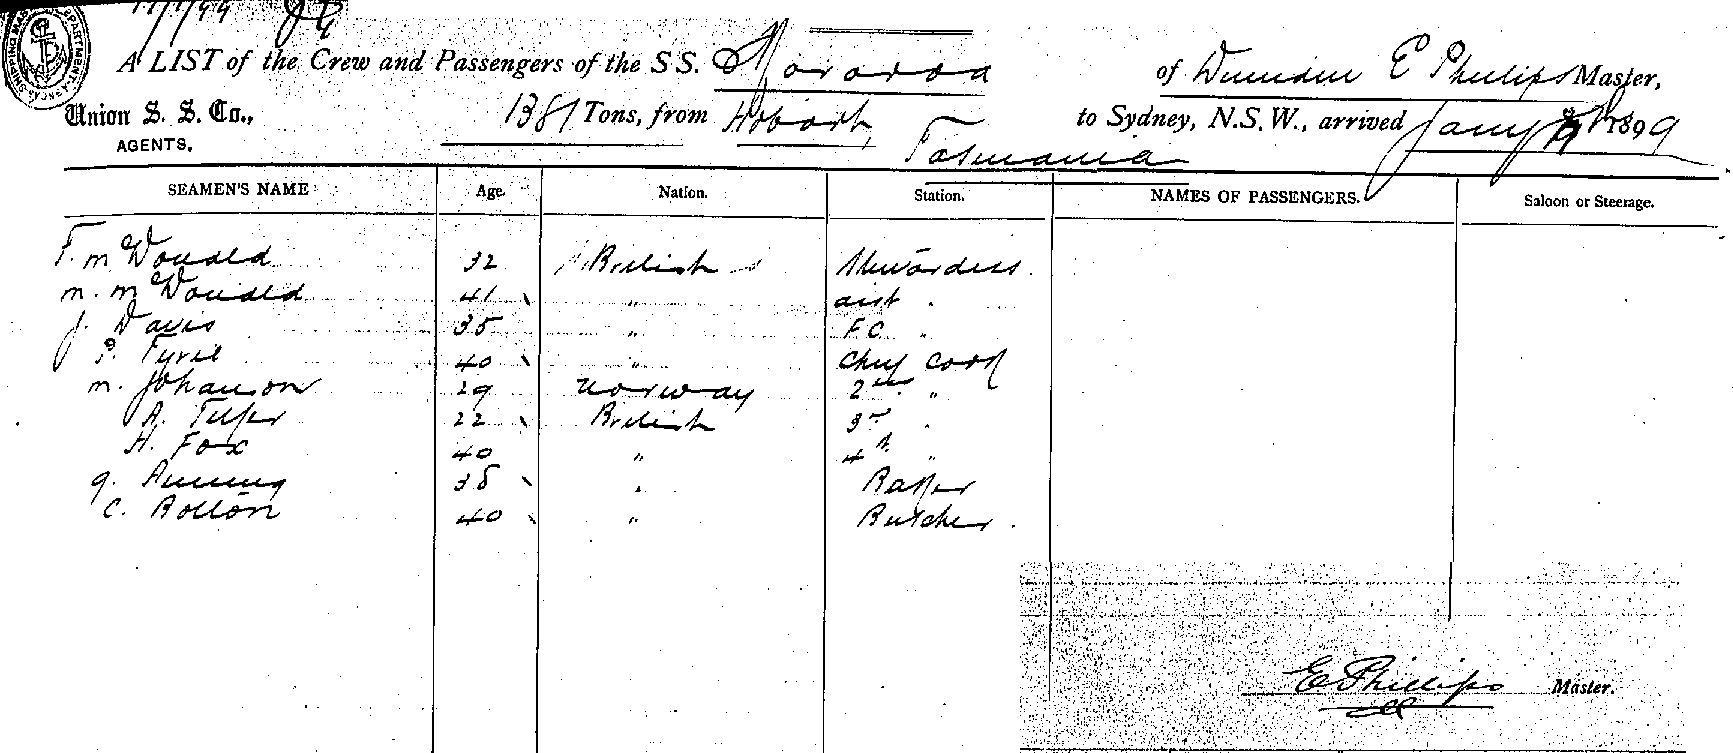 A LIST of the Crew and Passengers of the S S. Mararoa of Dunedin E Phillips Master,
Union S. S. Co., 1381 Tons, from Hobart, Tasmania to Sydney, N.S.W., arrived Jany 1899
AGENTS.
SEAMEN'S NAME Age. Nation. Station. NAMES OF PASSENGERS. Saloon or Steerage.
F. McDonald 32 British Stewardess
M. McDonald 41 " asst "
J. Davis 35 " F.C. "
P. 40 " Chief Cook
M. Johanson 29 Norway 2nd "
A. Telfer 22 British 3rd "
H. Fox 40 " 4th "
G. 38 " Baker
C. Bolton 40 " Butcher
E Phillips Master.